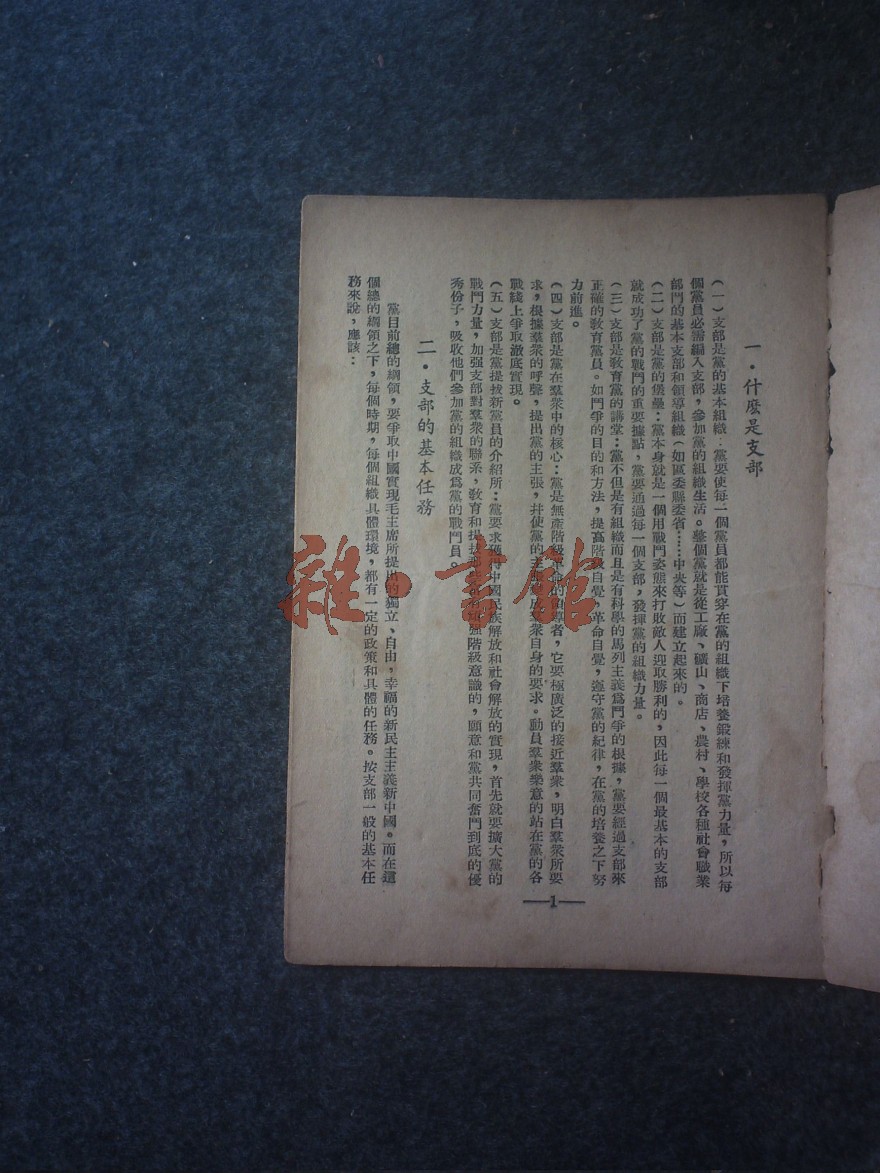 一·什麽是支部
(一)支部是黨的基本組織:黨要使每一個黨員都能貫穿在黨的組織下培養鍛練和發揮黨力量,所以每
個黨員必需編入支部,參加黨的組織生活。整個黨就是從工廠、礦山、商店、農村、學校各種社會職業
部門的基本支部和領導組織(如區委縣委省……中央等)而建立起來的。
(二)支部是黨的堡壘:黨本身就是一個用戰鬥姿態來打敗敵人迎取勝利的,因此每一個最基本的支部
就成功了黨的戰鬥的重要據點,黨要通過每一個支部,發揮黨的組織力量。
(三)支部是敎育黨的講堂:黨不但是有組織而且是有科學的馬列主義爲鬥爭的根據,黨要經過支部來
正確的敎育黨員。如鬥爭的目的和方法,提高階級自覺,革命自覺,遵守黨的紀律,在黨的培養之下努
力前進。
(四)支部是黨在羣衆中的核心:黨是無產階級革命的領導者,它要極廣泛的接近羣衆,明白羣衆所要
求,根據羣衆的呼聲,提出黨的主張,幷使黨的主張成羣衆自身的要求。動員羣衆樂意的站在黨的各
戰綫上爭取澈底實現。
(五)支部是黨提拔新黨員的介紹所:黨要求獲得中國民族解放和社會解放的實現,首先就要擴大黨的
戰鬥力量,加强支部對羣衆的聯系,敎育和提拔增强階級意識的,願意和黨共同奮鬥到底的優
秀份子,吸收他們參加黨的組織成爲黨的戰鬥員。
二·支部的基本任務
黨目前總的綱領,要爭取中國實現毛主席所提出的獨立、自由,幸福的新民主主義新中國。而在這
個總的綱領之下,每個時期,每個組織具體環境,都有一定的政策和具體的任務。按支部一般的基本任
務來說,應該:
—1—
雜·書館